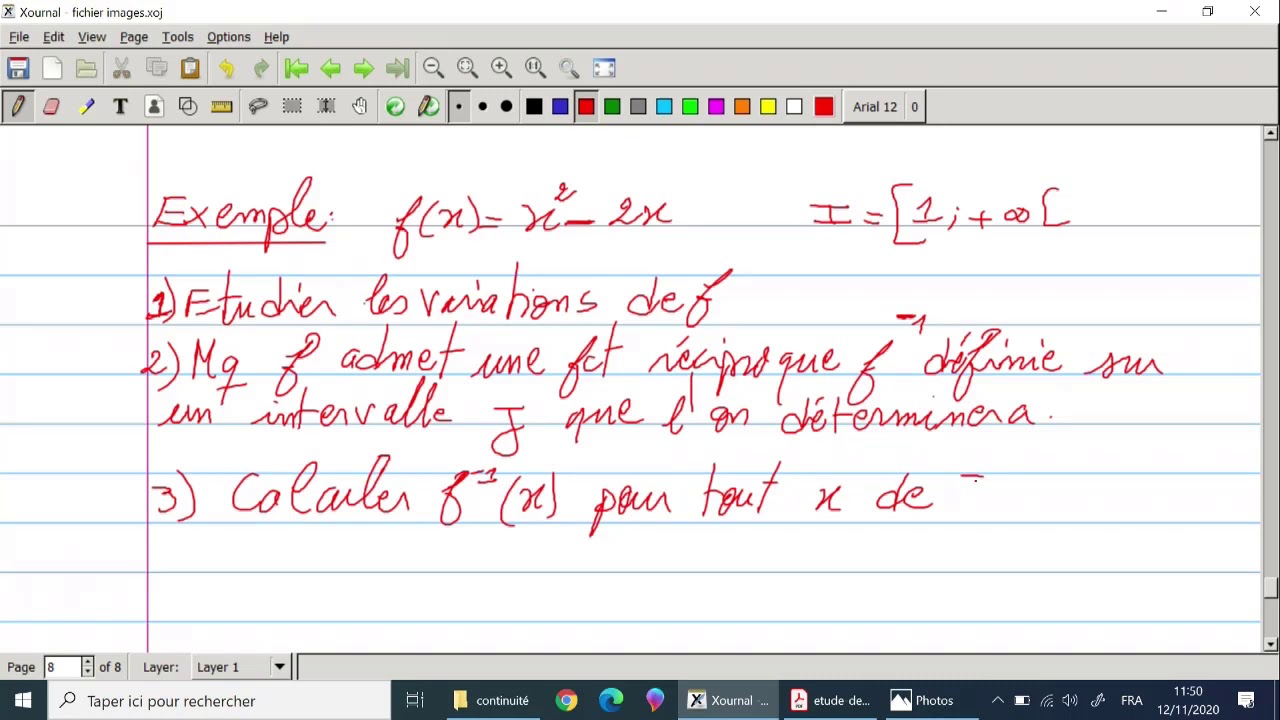 Xournal - fichier images.xoj
File Edit View Page Tools Options Help
Arial 12 0
Exemple: f(x)= x² - 2x I = [1; +∞[
1) Etudier les variations de f
2) Mq f admet une fct réciproque f⁻¹ définie sur
un intervalle J que l'on déterminera.
3) Calculer f⁻¹(x) pour tout x de
Page 8 of 8 Layer: Layer 1
Taper ici pour rechercher continuité Xournal ... etude de... Photos FRA 11:50
12/11/2020